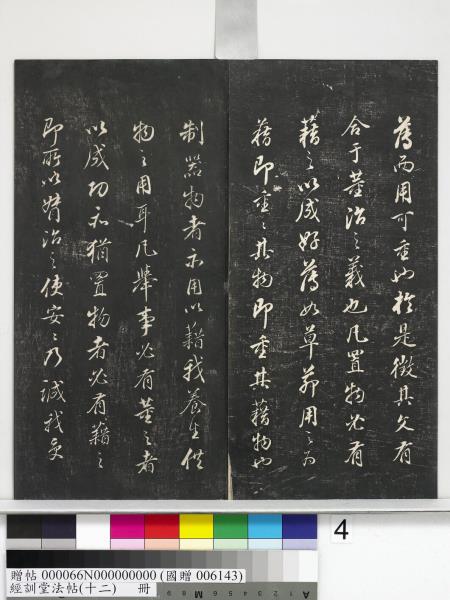 薄而用可重也於是徵其文有
合于董治之義也凡置物必有
藉之以成好薄如草茆用之為
藉即重之其物即重其藉物也
制器物者亦用以藉我養生供
物之用耳凡舉事必有董之者
以成功亦猶置物者必有藉之
即所以治之使安之乃誠我受
4
贈帖 000066N000000000 (國贈 006143)
經訓堂法帖(十二) 冊